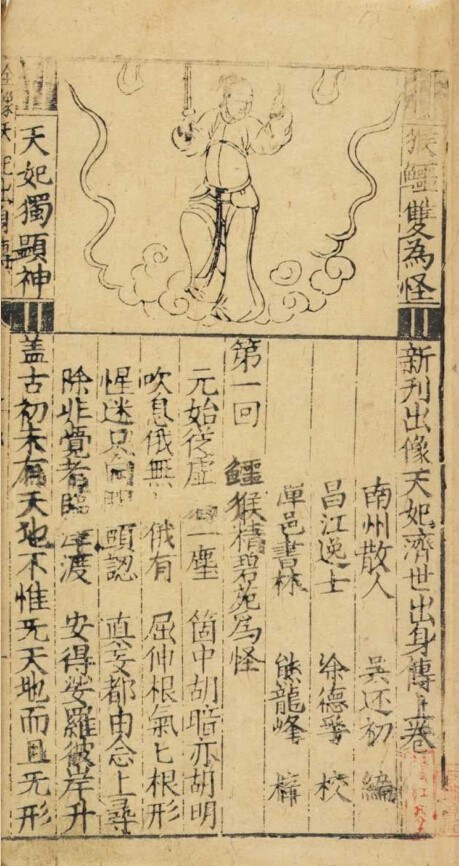 猴鱷雙為怪
天妃獨顯神
新刊出像天妃濟世出身傳上卷
南州散人 吳还初 編
昌江逸士 余德孚 校
潭邑書林 熊龍峰 梓
第一回 鱷猴精碧苑為怪
元始從虛 一塵 箇中胡暗亦胡明
吹息俄無 俄有 屈伸根氣匕根形
惺迷只 頭認 真妄都由念上尋
除非覺者臨 渡 安得婆羅彼岸升
盖古初未有天地不惟旡天地而且旡形